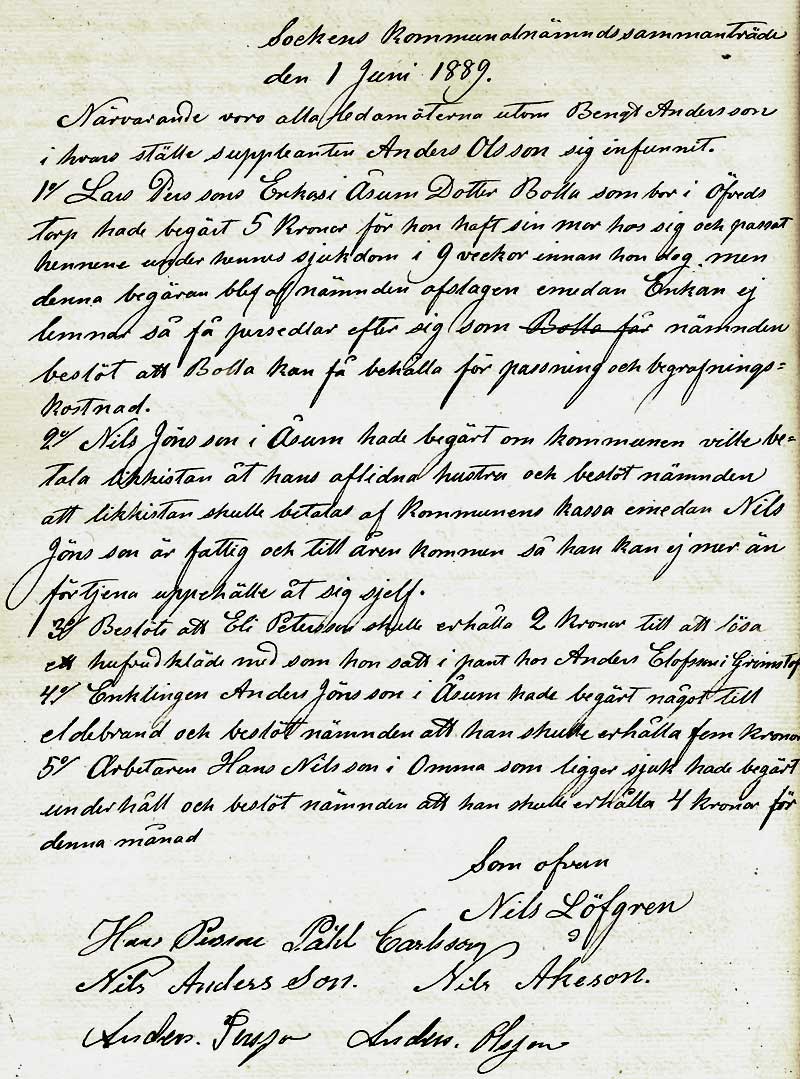 Sockens Kommunalnämndssammanträde
den 1 Juni 1889.
Närvarande voro alla ledamöterna utom Bengt Andersson
i hvars ställe suppleanten Anders Olsson sig infunnit.
1o/ Lars Perssons Enkas i Åsum Dotter Bolla som bor i Öfveds
torp hade begärt 5 Kronor för hon haft sin mor hos sig och passat
hennene under hennes sjukdom i 9 veckor innan hon dog. men
denna begäran blef af nämnden afslagen emedan Enkan ej
lemnar så få persedlar efter sig som Bolla får nämnden
beslöt att Bolla kan få behålla för passning och begrafnings=
kostnad.
2o/ Nils Jönsson i Åsum hade begärt om kommunen ville be-
tala likkistan åt hans aflidna hustru och beslöt nämnden
att likkistan skulle betalas af Kommunens kassa emedan Nils
Jöns son är fattig och till åren kommen så han kan ej mer än
förtjena uppehälle åt sig sjelf.
3o/ Beslöts att Eli Petersson skulle erhålla 2 Kronor till att lösa
ett hufvudkläde med som hon satt i pant hos Anders Elofson i Grimstof
4o/ Enklingen Anders Jönsson i Åsum hade begärt något till
eldebrand och beslöt nämnden att han skulle erhålla fem kronor
5o/ Arbetaren Hans Nilsson i Omma som ligger sjuk hade begärt
underhåll och beslöt nämnden att han skulle erhålla 4 kronor för
denna månad
Som ofvan
Nils Löfgren
Hans Persson Påhl Carlsson
Nils Anders Son. Nils Åkeson.
Anders. Persso Anders. Olsson